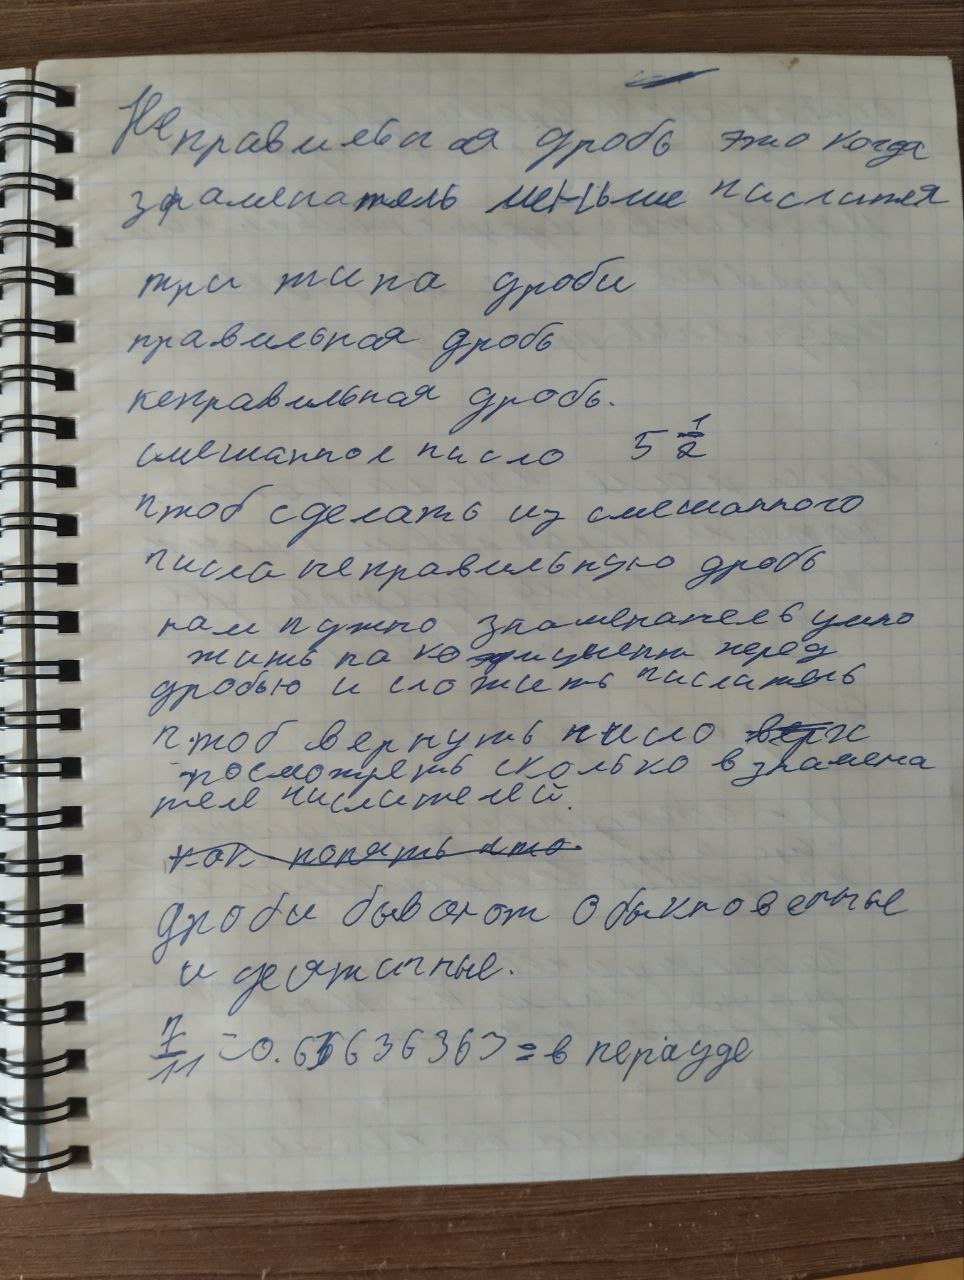 Неправильная дробь это когда
знаменатель меньше числителя
три типа дроби
правильная дробь
неправильная дробь.
смешанное число 5 1/2
чтоб сделать из смешанного
числа неправильную дробь
нам нужно знаменатель умно
жить на перед
дробью и сложить числитель
чтоб вернуть число
посмотреть сколько в знамена
теле числителей.
как понять что
дроби бывают обыкновенные
и десятичные.
7/11 = 0.63636363 = в периуде